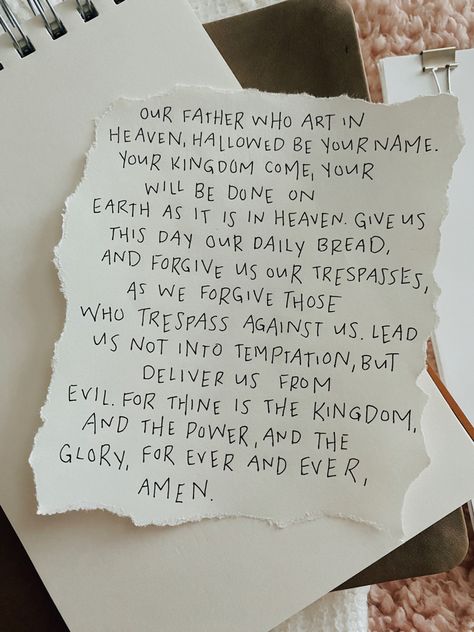 OUR FATHER WHO ART IN
HEAVEN, HALLOWED BE YOUR NAME.
YOUR KINGDOM COME, YOUR
WILL BE DONE ON
EARTH AS IT IS IN HEAVEN. GIVE US
THIS DAY OUR DAILY BREAD,
AND FORGIVE US OUR TRESPASSES,
AS WE FORGIVE THOSE
WHO TRESPASS AGAINST US. LEAD
US NOT INTO TEMPTATION, BUT
DELIVER US FROM
EVIL. FOR THINE IS THE KINGDOM,
AND THE POWER, AND THE
GLORY, FOR EVER AND EVER,
AMEN.